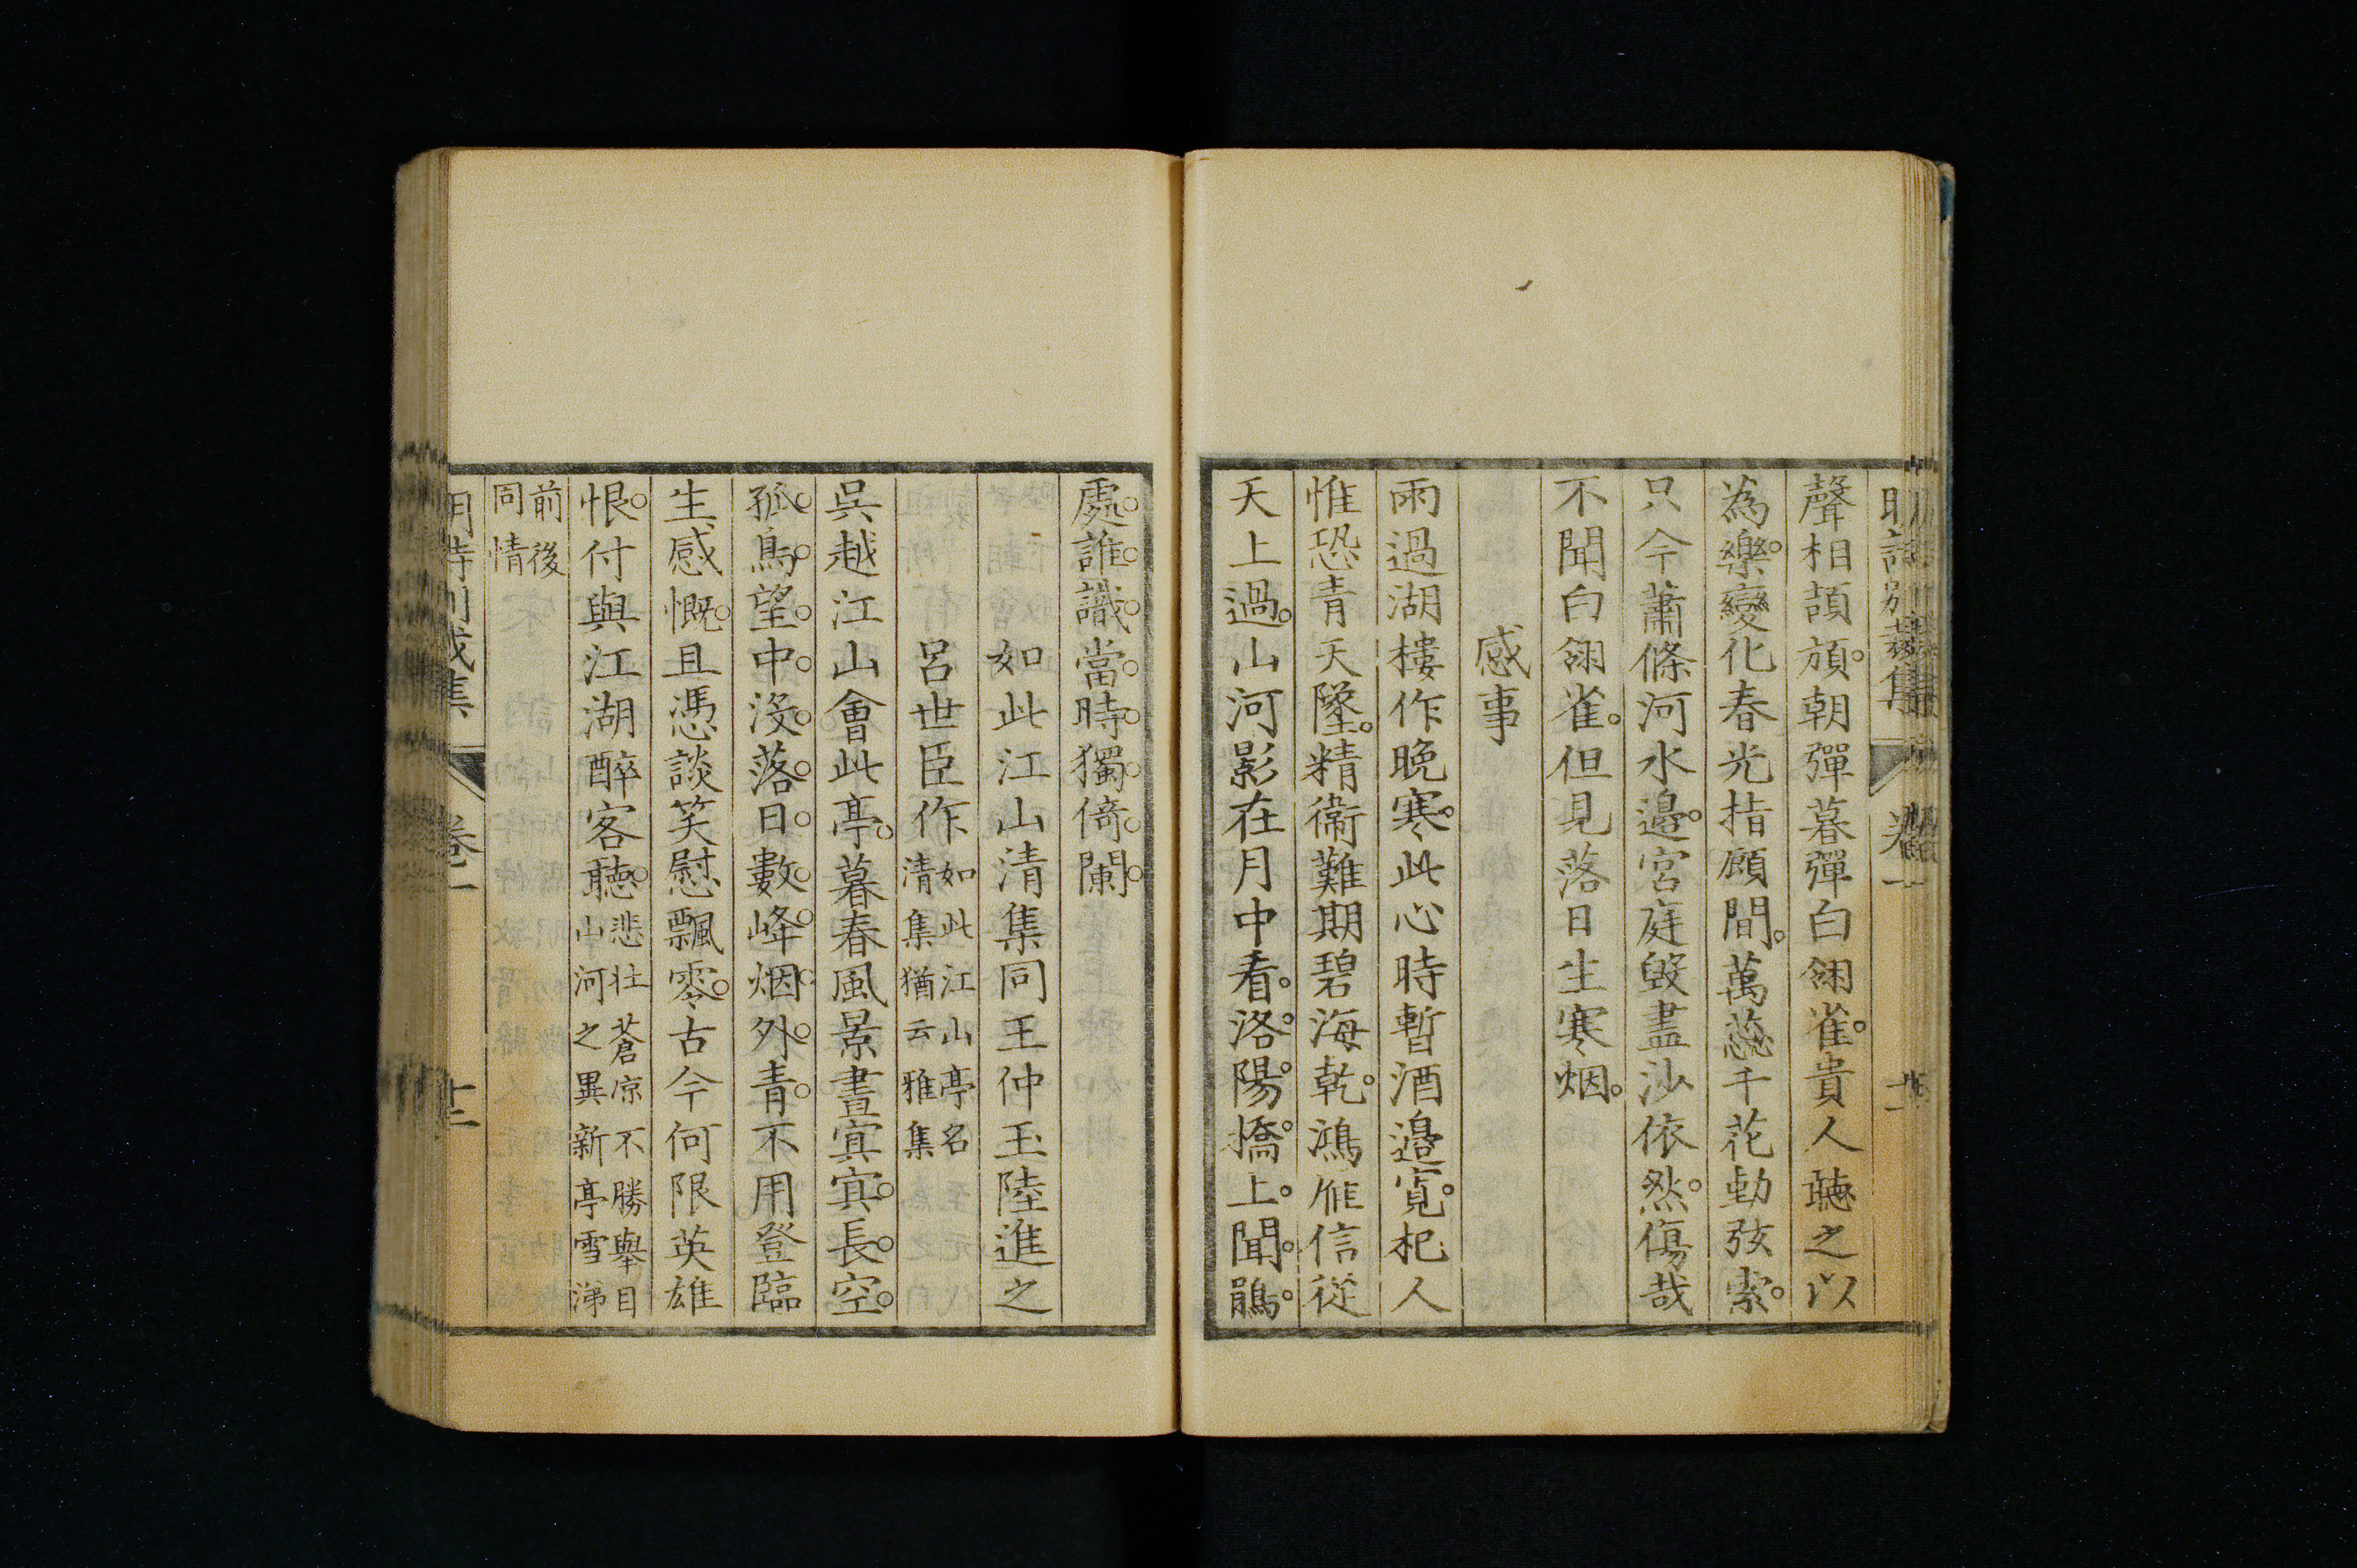 明詩別裁集 卷一
聲相頡頏朝彈暮彈白翎雀貴人聽之以
為樂變化春光指顧間萬蕊千花動弦索
只今蕭條河水邊宮庭毀盡沙依然傷哉
不聞白翎雀但見落日生寒烟
感事
雨過湖樓作晚寒此心時暫酒邊寬杞人
惟恐青天墜精衞難期碧海乾鴻雁信從
天上過山河影在月中看洛陽橋上聞鵑
處誰識當時獨倚闌
如此江山清集同王仲玉陸進之
呂世臣作如此江山亭名清集猶云雅集
吳越江山會此亭暮春風景晝冥冥長空
孤鳥望中沒落日數峰烟外青不用登臨
生感慨且憑談笑慰飄零古今何限英雄
恨付與江湖醉客聽悲壯蒼凉不勝舉目山河之異新亭雪涕
前後同情
明詩別裁集 卷一 十二